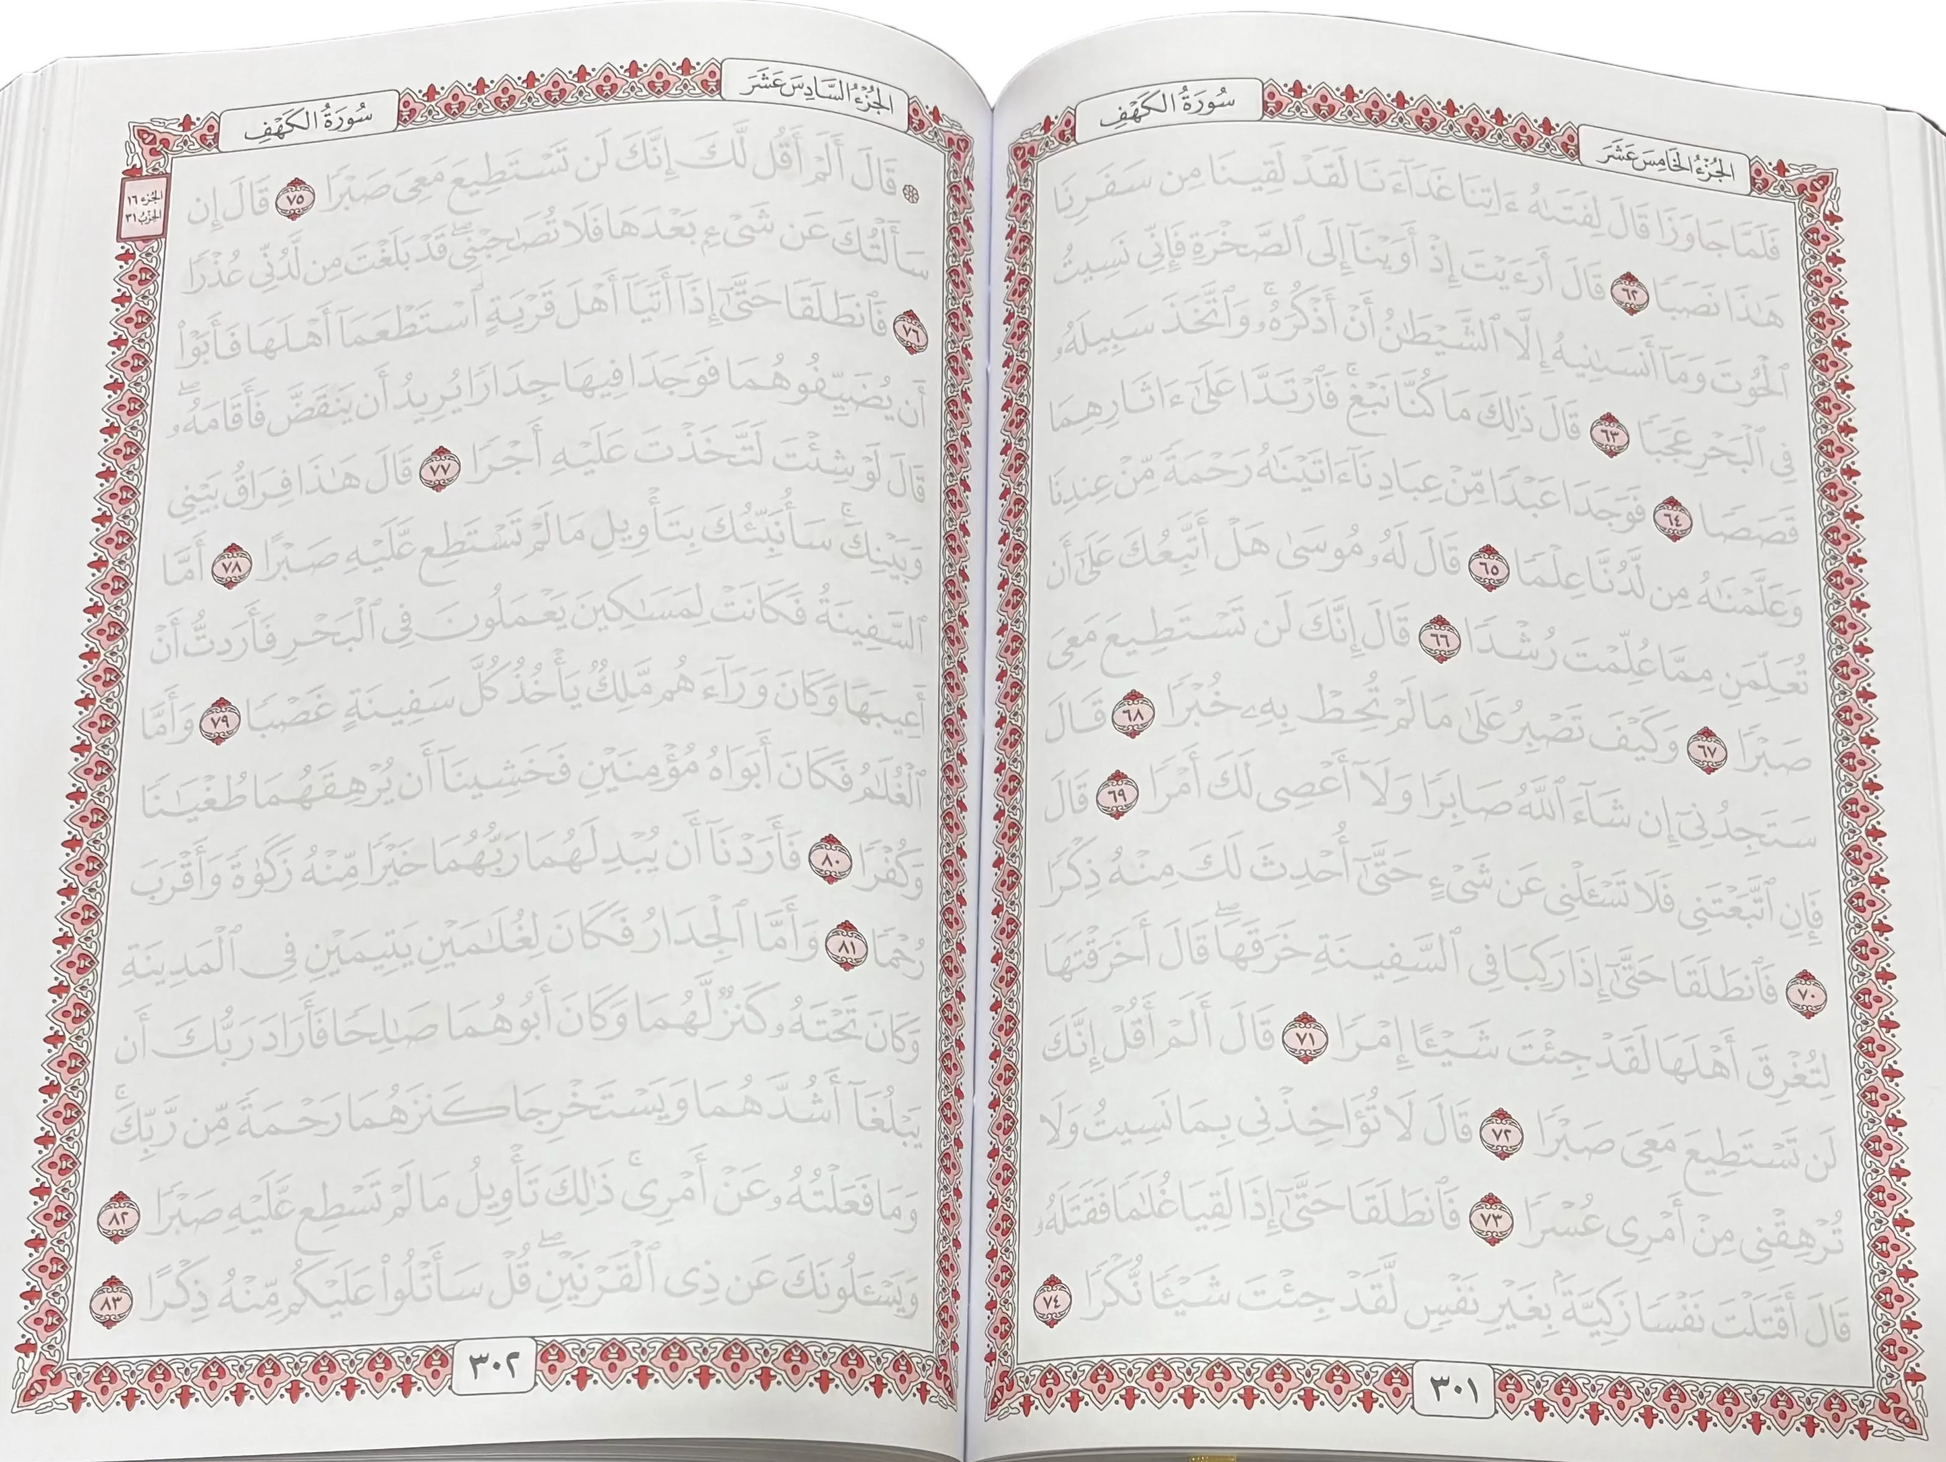 الجُزْءُ الخَامِسَ عَشَرَ
سُورَةُ الكَهْفِ
فَلَمَّا جَاوَزَا قَالَ لِفَتَىٰهُ ءَاتِنَا غَدَآءَنَا لَقَدْ لَقِينَا مِن سَفَرِنَا
هَٰذَا نَصَبًا ٦٢ قَالَ أَرَءَيْتَ إِذْ أَوَيْنَآ إِلَى ٱلصَّخْرَةِ فَإِنِّى نَسِيتُ
ٱلْحُوتَ وَمَآ أَنسَىٰنِيهُ إِلَّا ٱلشَّيْطَٰنُ أَنْ أَذْكُرَهُۥ ۚ وَٱتَّخَذَ سَبِيلَهُۥ
فِى ٱلْبَحْرِ عَجَبًا ٦٣ قَالَ ذَٰلِكَ مَا كُنَّا نَبْغِ ۚ فَٱرْتَدَّا عَلَىٰٓ ءَاثَارِهِمَا
قَصَصًا ٦٤ فَوَجَدَا عَبْدًا مِّنْ عِبَادِنَآ ءَاتَيْنَٰهُ رَحْمَةً مِّنْ عِندِنَا
وَعَلَّمْنَٰهُ مِن لَّدُنَّا عِلْمًا ٦٥ قَالَ لَهُۥ مُوسَىٰ هَلْ أَتَّبِعُكَ عَلَىٰٓ أَن
تُعَلِّمَنِ مِمَّا عُلِّمْتَ رُشْدًا ٦٦ قَالَ إِنَّكَ لَن تَسْتَطِيعَ مَعِىَ
صَبْرًا ٦٧ وَكَيْفَ تَصْبِرُ عَلَىٰ مَا لَمْ تُحِطْ بِهِۦ خُبْرًا ٦٨ قَالَ
سَتَجِدُنِىٓ إِن شَآءَ ٱللَّهُ صَابِرًا وَلَآ أَعْصِى لَكَ أَمْرًا ٦٩ قَالَ
فَإِنِ ٱتَّبَعْتَنِى فَلَا تَسْـَٔلْنِى عَن شَىْءٍ حَتَّىٰٓ أُحْدِثَ لَكَ مِنْهُ ذِكْرًا
٧٠ فَٱنطَلَقَا حَتَّىٰٓ إِذَا رَكِبَا فِى ٱلسَّفِينَةِ خَرَقَهَا ۖ قَالَ أَخَرَقْتَهَا
لِتُغْرِقَ أَهْلَهَا لَقَدْ جِئْتَ شَيْـًٔا إِمْرًا ٧١ قَالَ أَلَمْ أَقُلْ إِنَّكَ
لَن تَسْتَطِيعَ مَعِىَ صَبْرًا ٧٢ قَالَ لَا تُؤَاخِذْنِى بِمَا نَسِيتُ وَلَا
تُرْهِقْنِى مِنْ أَمْرِى عُسْرًا ٧٣ فَٱنطَلَقَا حَتَّىٰٓ إِذَا لَقِيَا غُلَٰمًا فَقَتَلَهُۥ
قَالَ أَقَتَلْتَ نَفْسًا زَكِيَّةًۢ بِغَيْرِ نَفْسٍ لَّقَدْ جِئْتَ شَيْـًٔا نُّكْرًا ٧٤
٣٠١
الجُزْءُ السَّادِسَ عَشَرَ
سُورَةُ الكَهْفِ
الجزء ١٦
الحزب ٣١
۞ قَالَ أَلَمْ أَقُل لَّكَ إِنَّكَ لَن تَسْتَطِيعَ مَعِىَ صَبْرًا ٧٥ قَالَ إِن
سَأَلْتُكَ عَن شَىْءٍۭ بَعْدَهَا فَلَا تُصَٰحِبْنِى ۖ قَدْ بَلَغْتَ مِن لَّدُنِّى عُذْرًا
٧٦ فَٱنطَلَقَا حَتَّىٰٓ إِذَآ أَتَيَآ أَهْلَ قَرْيَةٍ ٱسْتَطْعَمَآ أَهْلَهَا فَأَبَوْا۟
أَن يُضَيِّفُوهُمَا فَوَجَدَا فِيهَا جِدَارًا يُرِيدُ أَن يَنقَضَّ فَأَقَامَهُۥ ۖ
قَالَ لَوْ شِئْتَ لَتَّخَذْتَ عَلَيْهِ أَجْرًا ٧٧ قَالَ هَٰذَا فِرَاقُ بَيْنِى
وَبَيْنِكَ ۚ سَأُنَبِّئُكَ بِتَأْوِيلِ مَا لَمْ تَسْتَطِع عَّلَيْهِ صَبْرًا ٧٨ أَمَّا
ٱلسَّفِينَةُ فَكَانَتْ لِمَسَٰكِينَ يَعْمَلُونَ فِى ٱلْبَحْرِ فَأَرَدتُّ أَنْ
أَعِيبَهَا وَكَانَ وَرَآءَهُم مَّلِكٌ يَأْخُذُ كُلَّ سَفِينَةٍ غَصْبًا ٧٩ وَأَمَّا
ٱلْغُلَٰمُ فَكَانَ أَبَوَاهُ مُؤْمِنَيْنِ فَخَشِينَآ أَن يُرْهِقَهُمَا طُغْيَٰنًا
وَكُفْرًا ٨٠ فَأَرَدْنَآ أَن يُبْدِلَهُمَا رَبُّهُمَا خَيْرًا مِّنْهُ زَكَوٰةً وَأَقْرَبَ
رُحْمًا ٨١ وَأَمَّا ٱلْجِدَارُ فَكَانَ لِغُلَٰمَيْنِ يَتِيمَيْنِ فِى ٱلْمَدِينَةِ
وَكَانَ تَحْتَهُۥ كَنزٌ لَّهُمَا وَكَانَ أَبُوهُمَا صَٰلِحًا فَأَرَادَ رَبُّكَ أَن
يَبْلُغَآ أَشُدَّهُمَا وَيَسْتَخْرِجَا كَنزَهُمَا رَحْمَةً مِّن رَّبِّكَ ۚ
وَمَا فَعَلْتُهُۥ عَنْ أَمْرِى ۚ ذَٰلِكَ تَأْوِيلُ مَا لَمْ تَسْطِع عَّلَيْهِ صَبْرًا ٨٢
وَيَسْـَٔلُونَكَ عَن ذِى ٱلْقَرْنَيْنِ ۖ قُلْ سَأَتْلُوا۟ عَلَيْكُم مِّنْهُ ذِكْرًا ٨٣
٣٠٢